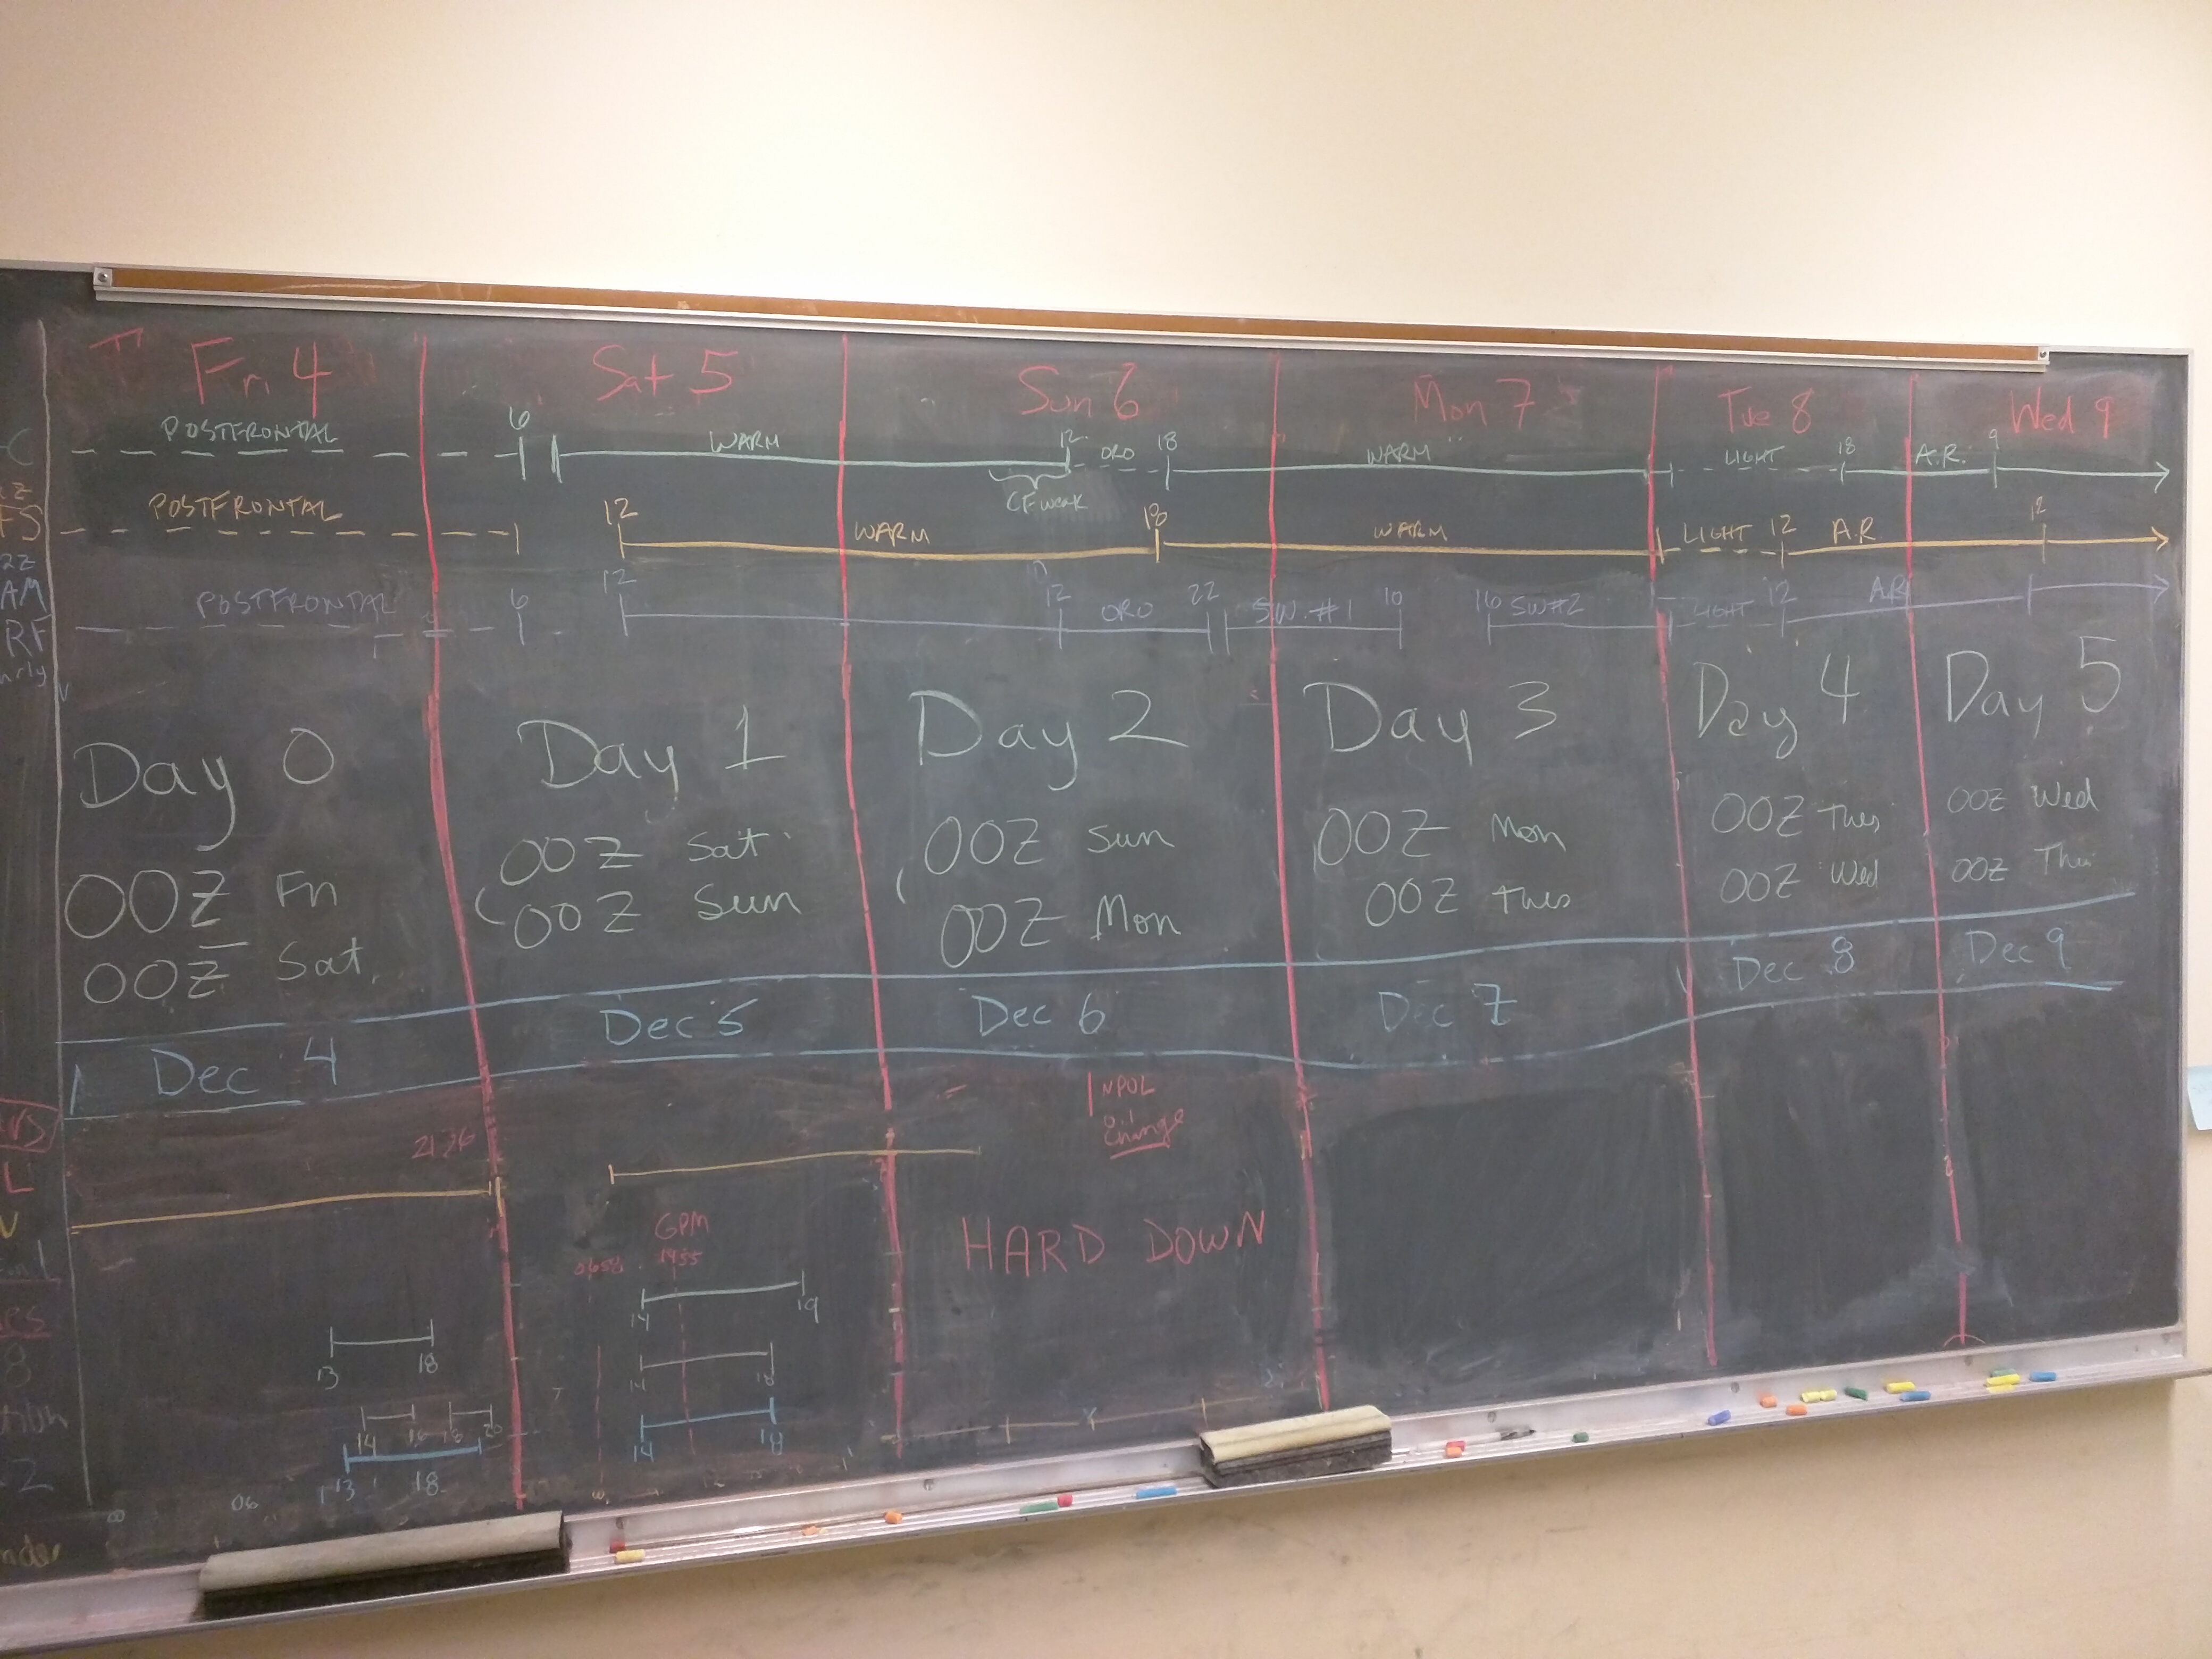 Fri 4 Sat 5 Sun 6 Mon 7 Tue 8 Wed 9
C POSTFRONTAL 6 WARM 12 ORO 18 WARM LIGHT 18 A.R. 9
CF weak
Z
FS POSTFRONTAL 12 WARM 18 WARM LIGHT 12 A.R. 12
2Z
AM POSTFRONTAL 6 12 12 ORO 22 S.W. #1 10 16 SW#2 LIGHT 12 AR
RF
Day 0 Day 1 Day 2 Day 3 Day 4 Day 5
00Z Fri 00Z Sat 00Z Sun 00Z Mon 00Z Tues 00Z Wed
00Z Sat. 00Z Sun 00Z Mon 00Z Tues 00Z Wed 00Z Thu
Dec 4 Dec 5 Dec 6 Dec 7 Dec 8 Dec 9
NPOL
Change
L
V
GPM
1955
HARD DOWN
14 19
13 18
14 18
14 16 20
14 18
13 18
06